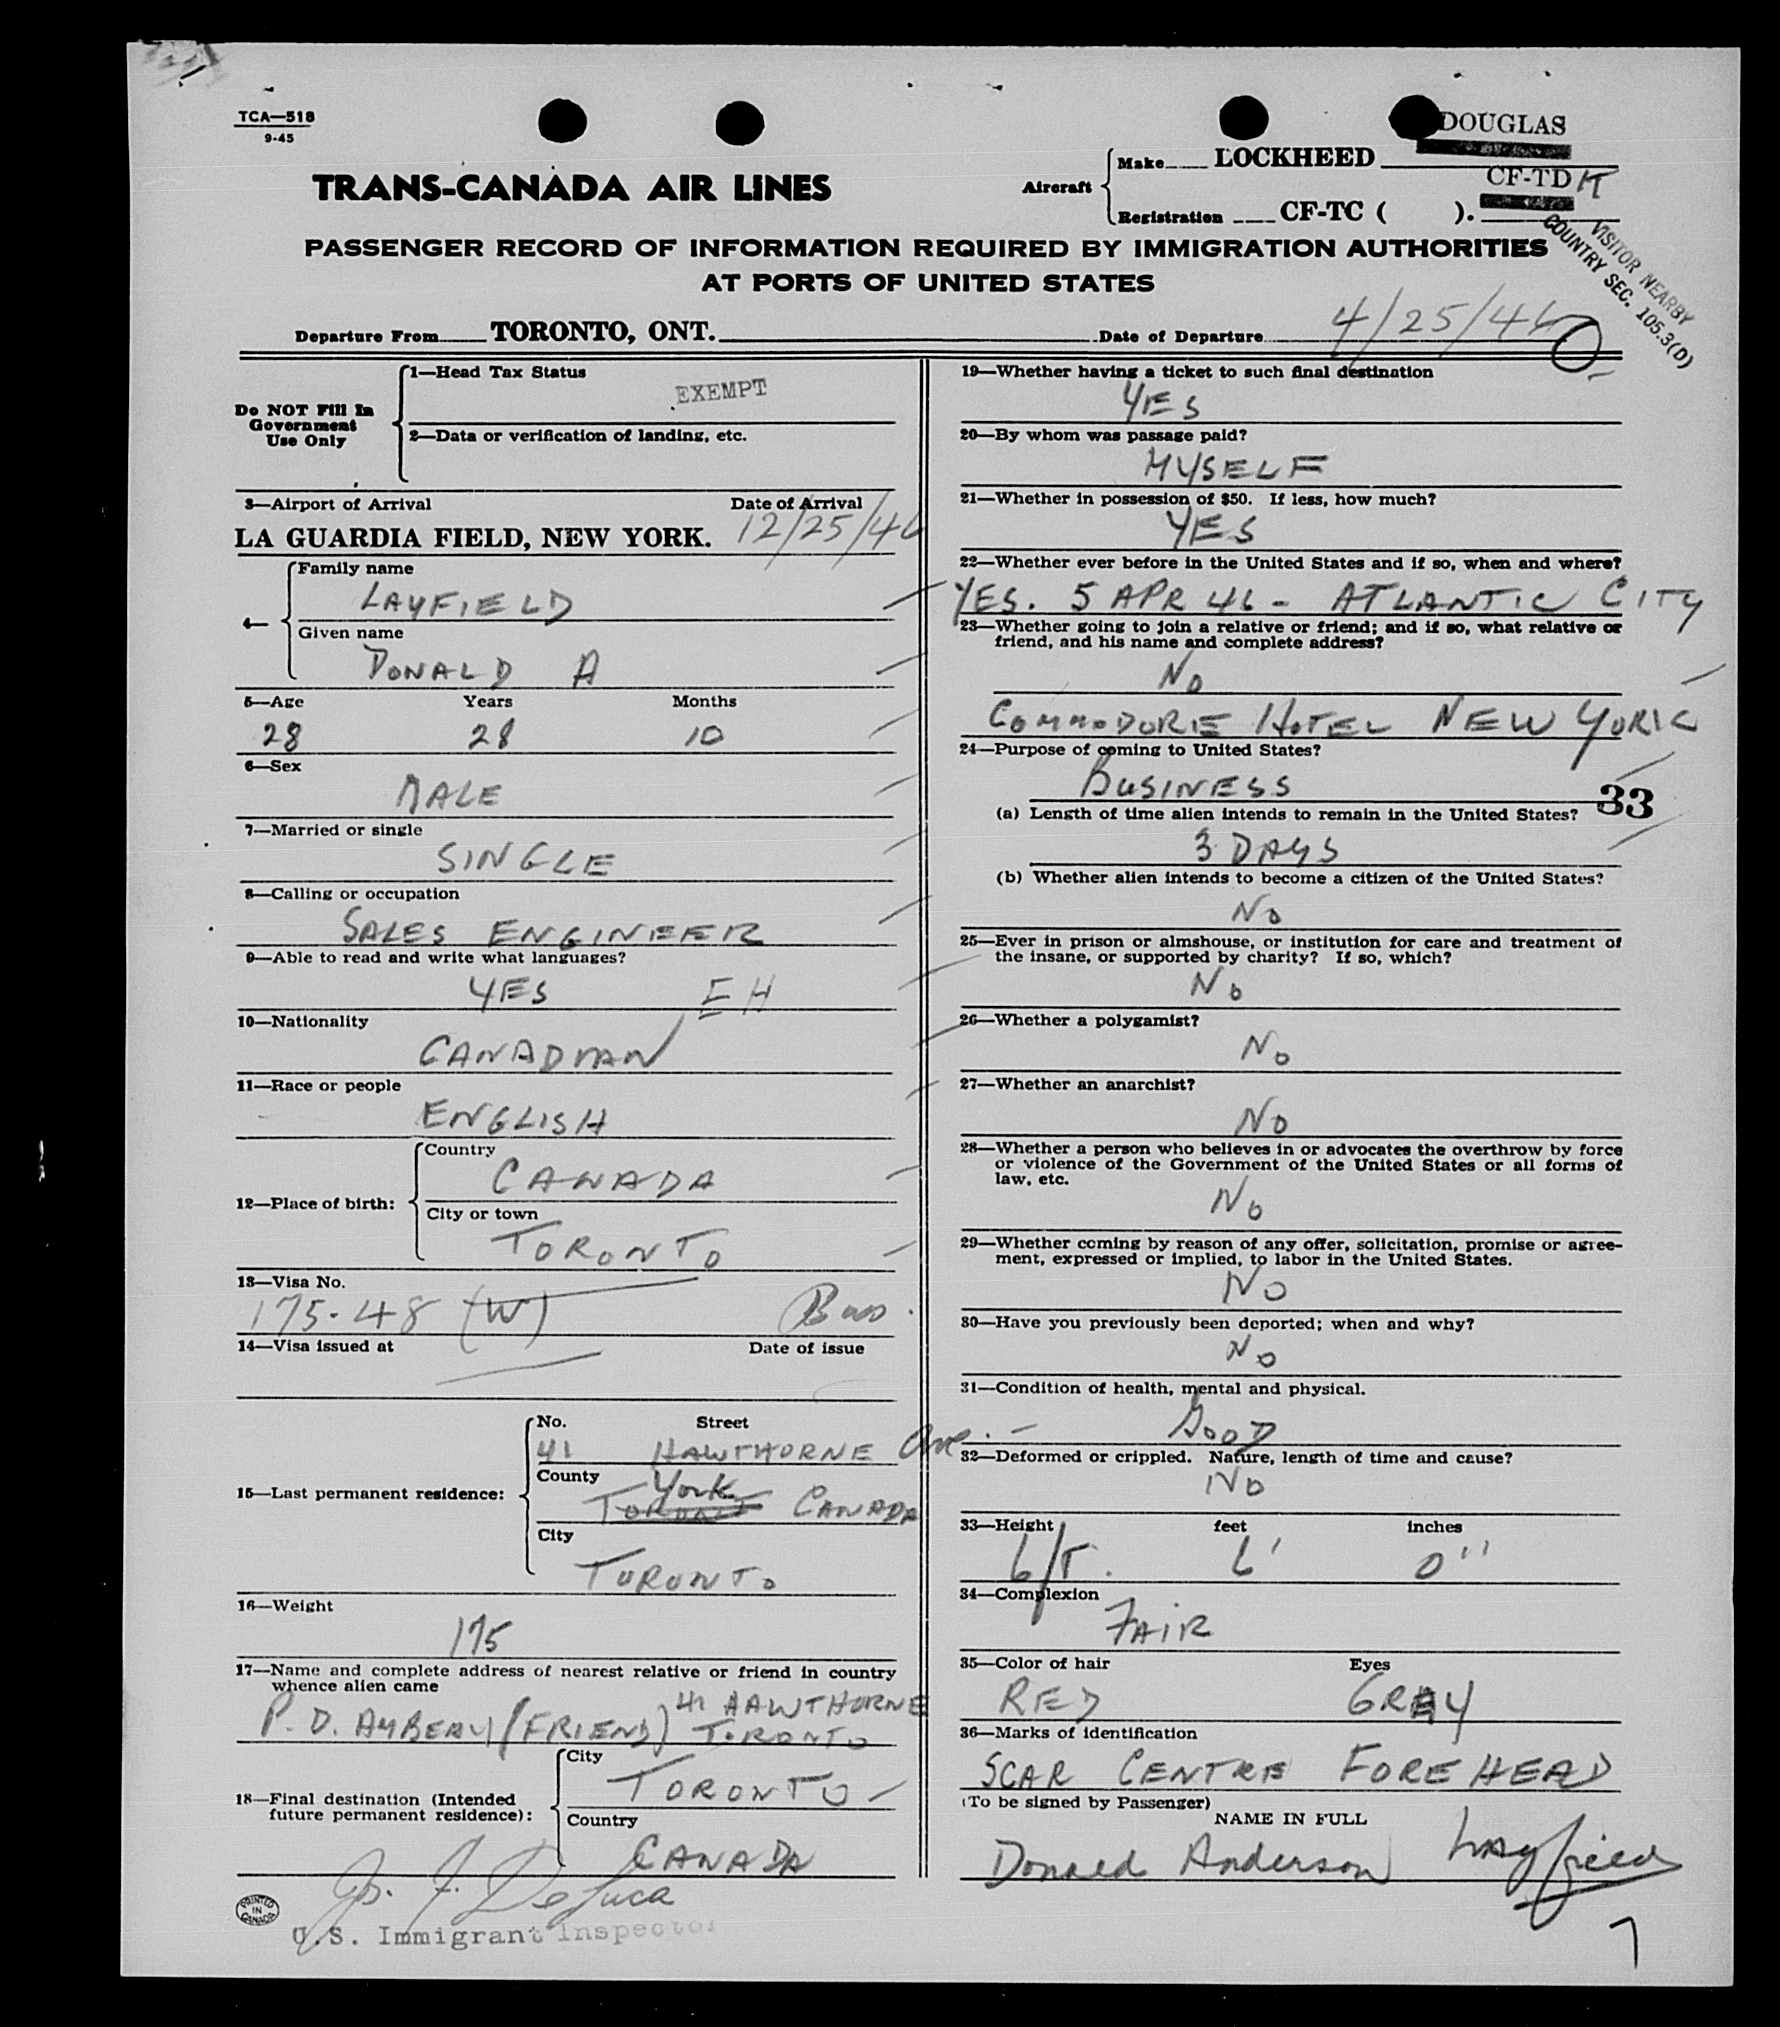 TCA—518
9-45
DOUGLAS
Aircraft
Make LOCKHEED
CF-TD K
Registration CF-TC ( ).
TRANS-CANADA AIR LINES
VISITOR NEARBY
COUNTRY SEC. 105.3(D)
PASSENGER RECORD OF INFORMATION REQUIRED BY IMMIGRATION AUTHORITIES
AT PORTS OF UNITED STATES
Departure From TORONTO, ONT. Date of Departure 4/25/46
Do NOT Fill In
Government
Use Only
1—Head Tax Status
EXEMPT
2—Data or verification of landing, etc.
3—Airport of Arrival Date of Arrival
LA GUARDIA FIELD, NEW YORK. 12/25/46
4—
Family name
LAYFIELD
Given name
DONALD A
5—Age Years Months
28 28 10
6—Sex
MALE
7—Married or single
SINGLE
8—Calling or occupation
SALES ENGINEER
9—Able to read and write what languages?
YES EH
10—Nationality
CANADIAN
11—Race or people
ENGLISH
12—Place of birth:
Country
CANADA
City or town
TORONTO
13—Visa No.
175-48 (W)
14—Visa issued at Date of issue
15—Last permanent residence:
No. Street
41 HAWTHORNE Ave.
County York
TORONTO CANADA
City
TORONTO
16—Weight
175
17—Name and complete address of nearest relative or friend in country
whence alien came
P. D. (FRIEND) 41 HAWTHORNE
TORONTO
18—Final destination (Intended
future permanent residence):
City
TORONTO
Country
CANADA
Jos. J. DeLuca
U.S. Immigrant Inspector
PRINTED
IN
CANADA
19—Whether having a ticket to such final destination
YES
20—By whom was passage paid?
MYSELF
21—Whether in possession of $50. If less, how much?
YES
22—Whether ever before in the United States and if so, when and where?
YES. 5 APR 46 - ATLANTIC CITY
23—Whether going to join a relative or friend; and if so, what relative or
friend, and his name and complete address?
NO
COMMODORE HOTEL NEW YORK
24—Purpose of coming to United States?
BUSINESS
33
(a) Length of time alien intends to remain in the United States?
3 DAYS
(b) Whether alien intends to become a citizen of the United States?
NO
25—Ever in prison or almshouse, or institution for care and treatment of
the insane, or supported by charity? If so, which?
NO
26—Whether a polygamist?
NO
27—Whether an anarchist?
NO
28—Whether a person who believes in or advocates the overthrow by force
or violence of the Government of the United States or all forms of
law, etc.
NO
29—Whether coming by reason of any offer, solicitation, promise or agree-
ment, expressed or implied, to labor in the United States.
NO
30—Have you previously been deported; when and why?
NO
31—Condition of health, mental and physical.
GOOD
32—Deformed or crippled. Nature, length of time and cause?
NO
33—Height feet inches
6 FT. 6' 0"
34—Complexion
FAIR
35—Color of hair Eyes
RED GREY
36—Marks of identification
SCAR CENTRE FOREHEAD
(To be signed by Passenger)
NAME IN FULL
Donald Anderson Layfield
7